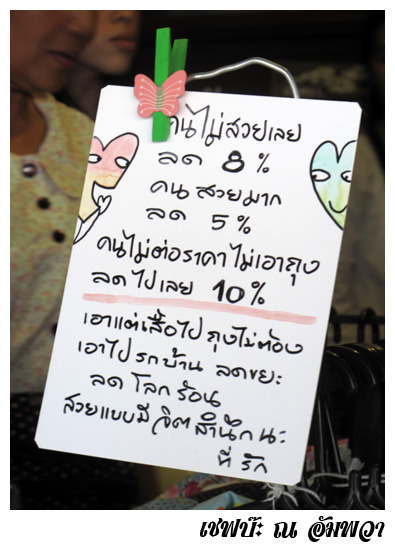 คนไม่สวยเลย
ลด 8%
คนสวยมาก
ลด 5%
คนไม่ต่อราคาไม่เอาถุง
ลดไปเลย 10%
เอาแต่เสื้อไป ถุงไม่ต้อง
เอาไปรกบ้าน ลดขยะ
ลดโลกร้อน
สวยแบบมีจิตสำนึกนะ
ที่รัก
เชพบ๊ะ ณ อัมพวา